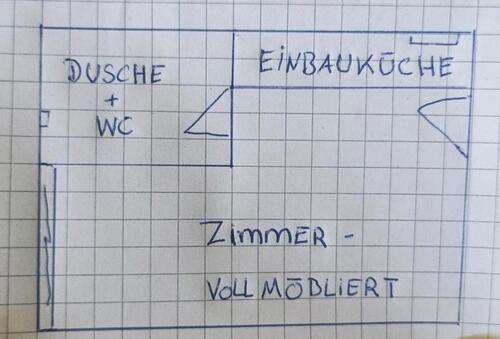 DUSCHE
+
WC
EINBAUKÜCHE
Zimmer -
VOLL MÖBLIERT